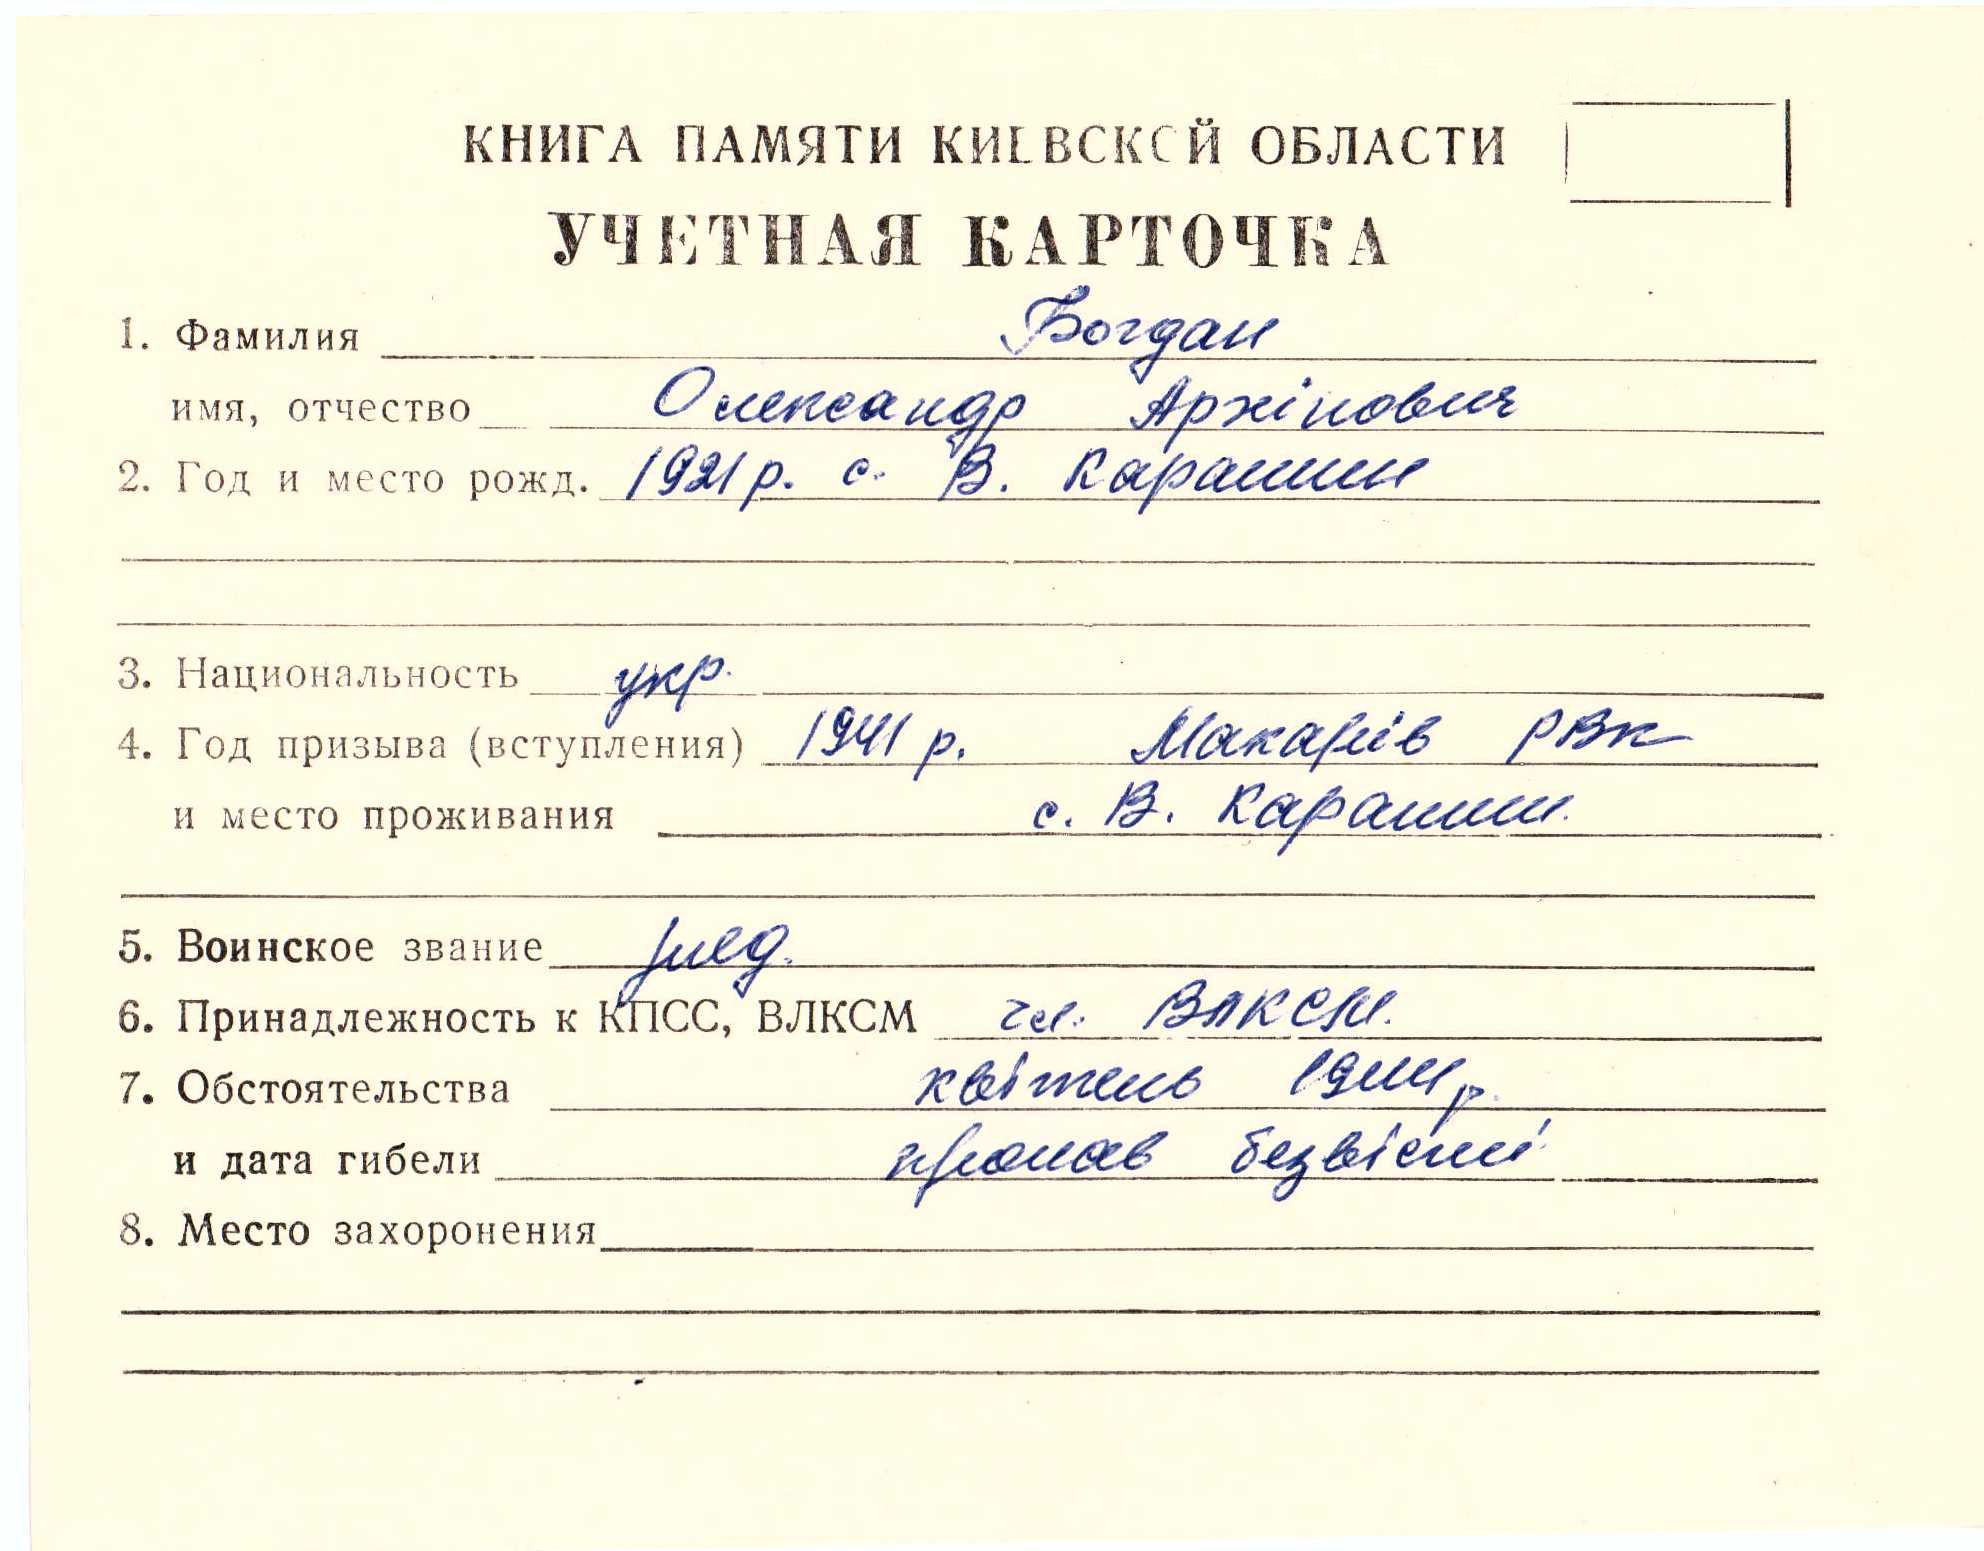 КНИГА ПАМЯТИ КИЕВСКОЙ ОБЛАСТИ
УЧЕТНАЯ КАРТОЧКА
1. Фамилия Богдан
имя, отчество Олександр Архіпович
2. Год и место рожд. 1921 р. с. В. Карашин
3. Национальность укр.
4. Год призыва (вступления) 1941 р. Макарів РВК
и место проживания с. В. Карашин.
5. Воинское звание
6. Принадлежность к КПСС, ВЛКСМ чл. ВЛКСМ.
7. Обстоятельства квітень 1944 р.
и дата гибели пропав безвісті
8. Место захоронения